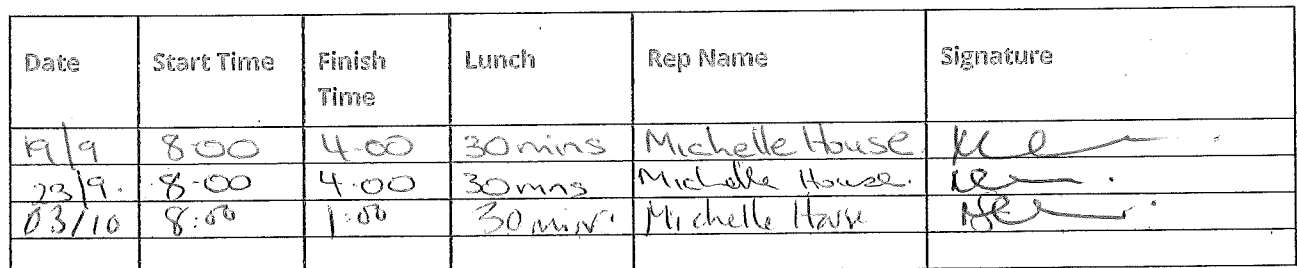 Date Start Time Finish Time Lunch Rep Name Signature
19/9 8:00 4.00 30mins Michelle House
23/9. 8-00 4.00 30mns Michelle House.
03/10 8:00 1:00 30 min Michelle House